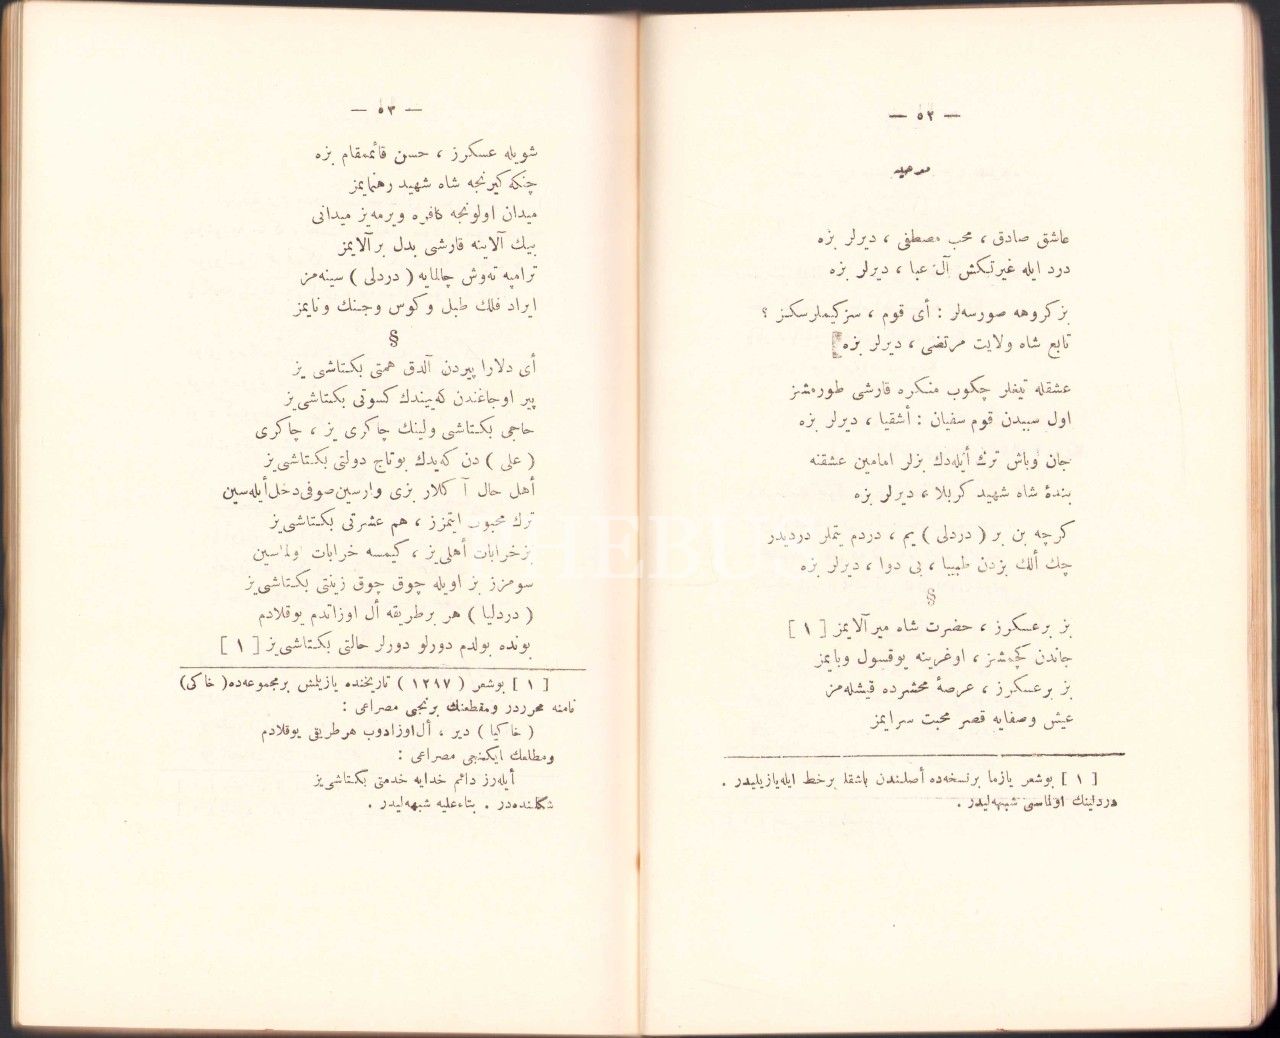 — ٥٢ —
مدحيه
عاشق صادق ، محب مصطفى ، ديرلر بزه
درد ايله غيرتكش آل عبا ، ديرلر بزه
بز كروهه صورسه‌لر : أى قوم ، سز كيملرسكز ؟
تابع شاه ولايت مرتضى ، ديرلر بزه
عشقله تيغلر چكوب منكره قارشى طورمشز
اول سببدن قوم سفيان : أشقيا ، ديرلر بزه
جان وباش ترك أيله‌دك بزلر امامين عشقنه
بندهٔ شاه شهيد كربلا ، ديرلر بزه
كرچه بن بر ( دردلى ) يم ، دردم يتملر درديدر
چك ألك بزدن طبيبا ، بى دوا ، ديرلر بزه
§
بز برعسكرز ، حضرت شاه ميرآلايمز [ ١ ]
جاندن كچمشز ، اوغرينه يوقسول وبايمز
بز برعسكرز ، عرصهٔ محشرده قيشله‌مز
عيش وصفايه قصر محبت سرايمز
[ ١ ] بوشعر يازما برنسخه‌ده أصلندن باشقا برخط ايله‌يازيليدر .
دردلينك اولماسى شبهه‌ليدر .
— ٥٣ —
شويله عسكرز ، حسن قائممقام بزه
چنكه كيرنجه شاه شهيد رهنمايمز
ميدان اولونجه كافره ويرمه‌يز ميدانى
بيك آلاينه قارشى بدل برآلايمز
ترامپه ته‌وش چالمايه ( دردلى ) سينه‌مز
ايراد فلك طبل وكوس وجنك ونايمز
§
أى دلارا پيردن آلدق همتى بكتاشى يز
پير اوجاغندن كه‌ييندك كسوتى بكتاشى‌يز
حاجى بكتاشى ولينك چاكرى يز ، چاكرى
( على ) دن كه‌يدك بوتاج دولتى بكتاشى‌يز
أهل حال آ كلار بزى وارسين‌صوفى‌دخل‌أيله‌سين
ترك محبوب ايتمزز ، هم عشرتى بكتاشى‌يز
بزخرابات أهلى‌يز ، كيمسه خرابات اولماسين
سومزز بز اويله چوق چوق زينتى بكتاشى‌يز
( دردليا ) هر برطريقه أل اوزاتدم يوقلادم
بونده بولدم دورلو دورلر حالتى بكتاشى‌يز [ ١ ]
[ ١ ] بوشعر ( ١٢٩٧ ) تاريخنده يازيلش برمجموعه‌ده ( خاكى )
نامنه محرردر ومقطعنك برنجى مصراعى :
( خاكيا ) دير ، أل‌اوزادوب هرطريقى يوقلادم
ومطلعك ايكنجى مصراعى :
أيله‌رز دائم خدايه خدمتى بكتاشى‌يز
شكلنده‌در . بناءعليه شبهه‌ليدر .